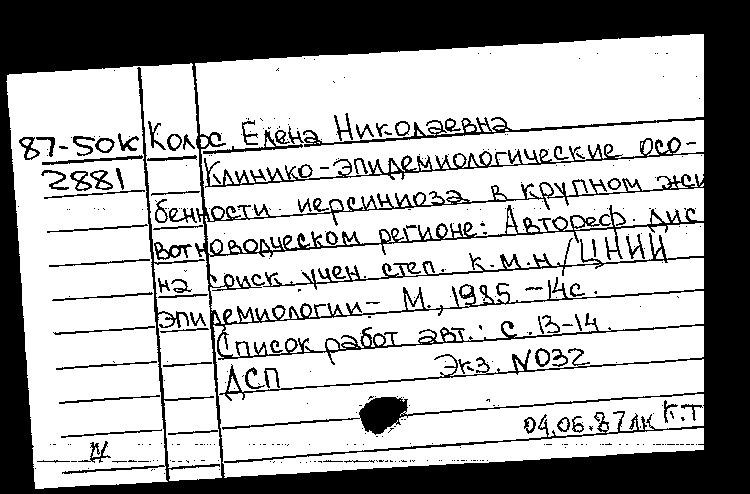 87-50к Колос, Елена Николаевна
2881 Клинико-эпидемиологические осо-
бенности иерсиниоза в крупном жи
вотноводческом регионе: Автореф. дис
на соиск. учен. степ. к.м.н./ЦНИИ
эпидемиологии.- М., 1985.-14с.
Список работ авт.: с.13-14.
ДСП Экз. N032
04.06.87лк К.Т